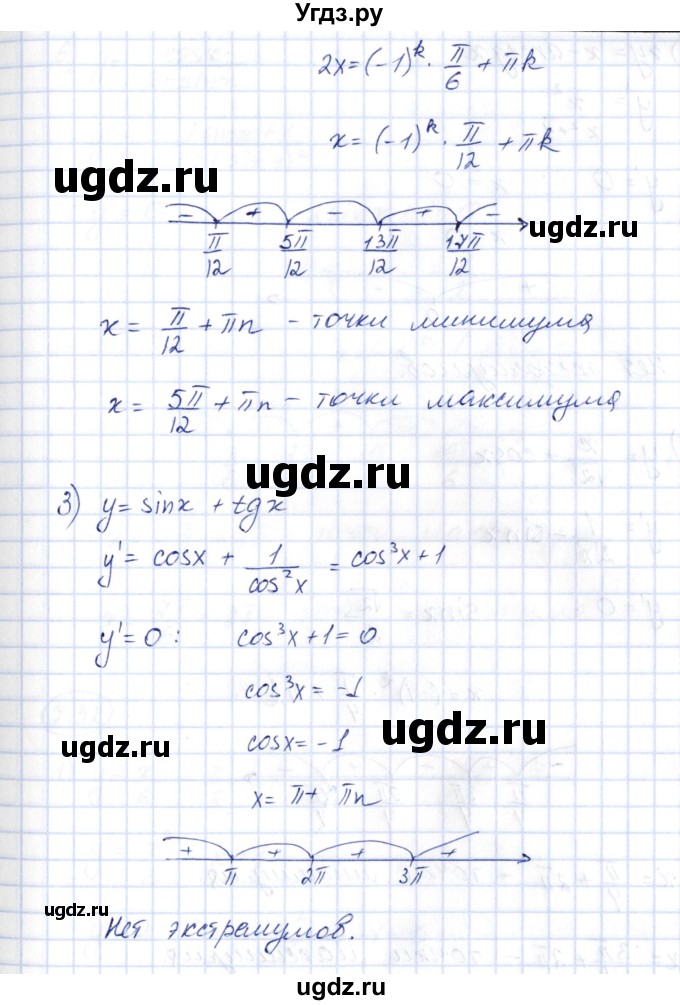 Угдз.ру
2x = (-1)^k · π/6 + πk
x = (-1)^k · π/12 + πk
ugdz.ru ugdz.ru
- + - + -
π/12 5π/12 13π/12 17π/12
x = π/12 + πn - точки минимума
x = 5π/12 + πn - точки максимума
ugdz.ru
3) y = sinx + tgx
y' = cosx + 1/cos²x = cos³x + 1
y' = 0 : cos³x + 1 = 0
cos³x = -1
ugdz.ru cosx = -1 ugdz.ru
x = π + πn
+ + + +
π 2π 3π
ugdz.ru
Нет экстремумов.
ugdz.ru